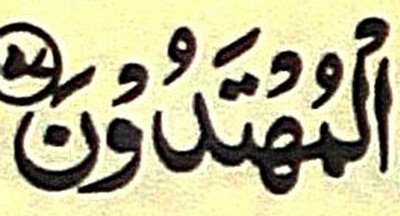 الْمُهْتَدُوْنَ